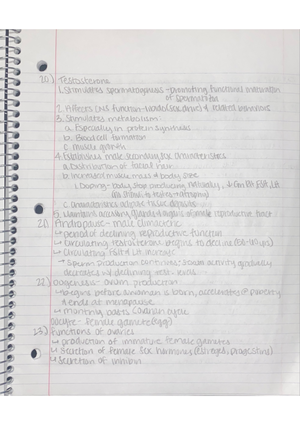 20.) Testosterone
1. Stimulates spermatogenesis - promoting functional maturation
of spermatozoa
2. Affects CNS function - libido (sex drive) & related behaviors
3. Stimulates metabolism:
a. Especially in protein synthesis
b. Blood cell formation
c. muscle growth
4. Establishes male secondary sex characteristics
a. Distribution of facial hair
b. Increased muscle mass & body size
1. Doping - body stop producing naturally, FSH, LH
testes
c. characteristic adipose tissue deposits
5. Maintains accessory glands & organs of male reproductive tract
21. Andropause - male climacteric
↳ period of declining reproductive function
↳ Circulating testosterone begins to decline
↳ Circulating FSH & LH increase
↳ Sperm production continues: sexual activity gradually
decreases w/ declining test. levels
22.) oogenesis - ovum production
↳ begins before woman is born, accelerates @ puberty
& ends at menopause
↳ monthly parts (ovarian cycle
oocyte - female gamete (egg)
23.) Functions of ovaries
↳ production of immature female gametes
↳ Secretion of female sex hormones (estrogens, progestins)
↳ Secretion of inhibin